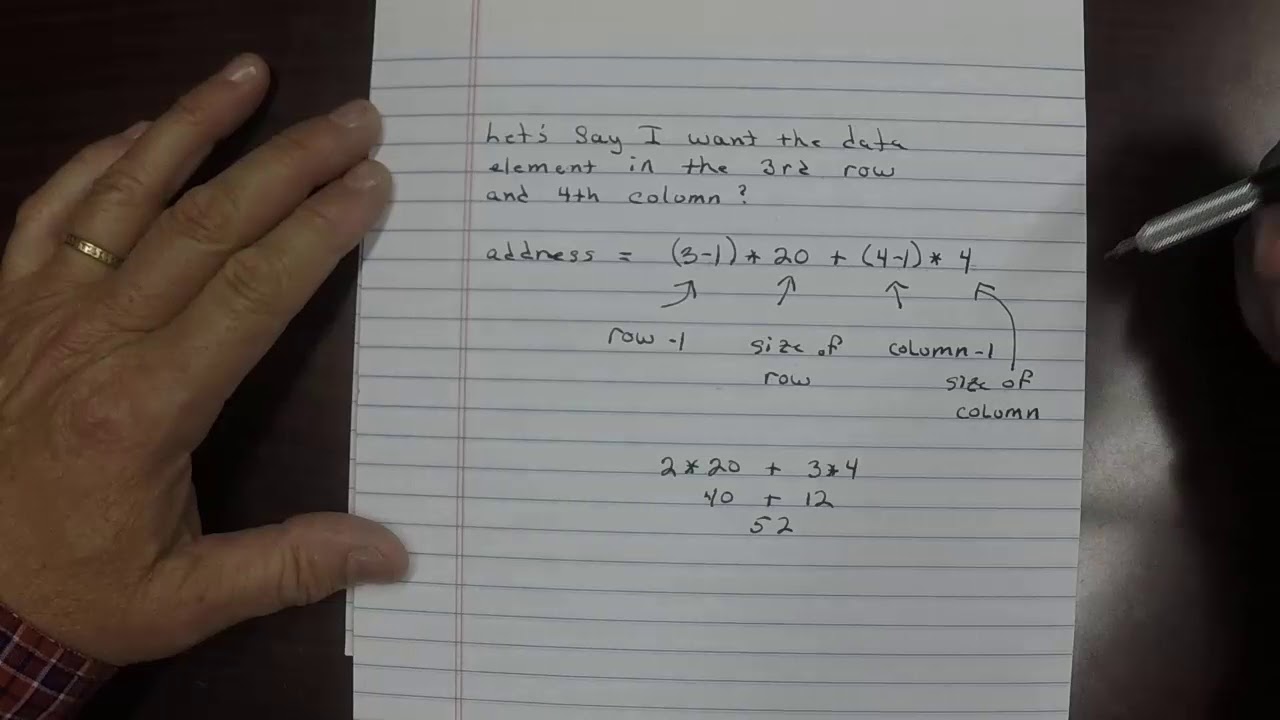 Let's Say I want the data
element in the 3rd row
and 4th column?
address = (3-1) * 20 + (4-1) * 4
row -1 size of column-1
row size of
column
2*20 + 3*4
40 + 12
52